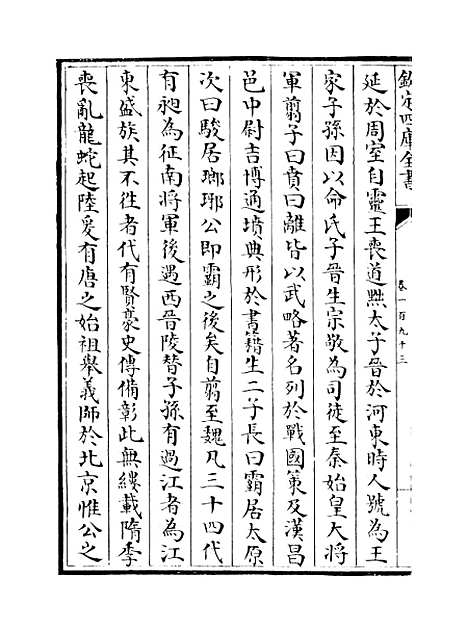 欽定四庫全書
卷一百九十三
延於周室自靈王喪道黜太子晉於河東時人號為王
家子孫因以命氏子晉生宗敬為司徒至秦始皇大將
軍翦子曰賁曰離皆以武略著名列於戰國策及漢昌
邑中尉吉博通墳典形於書籍生二子長曰霸居太原
次曰駿居瑯琊公即霸之後矣自翦至魏凡三十四代
有昶為征南將軍後遇西晉陵替子孫有過江者為江
東盛族其不徃者代有賢豪史傳備彰此無縷載隋季
喪亂龍蛇起陸爰有唐之始祖舉義師於北京惟公之